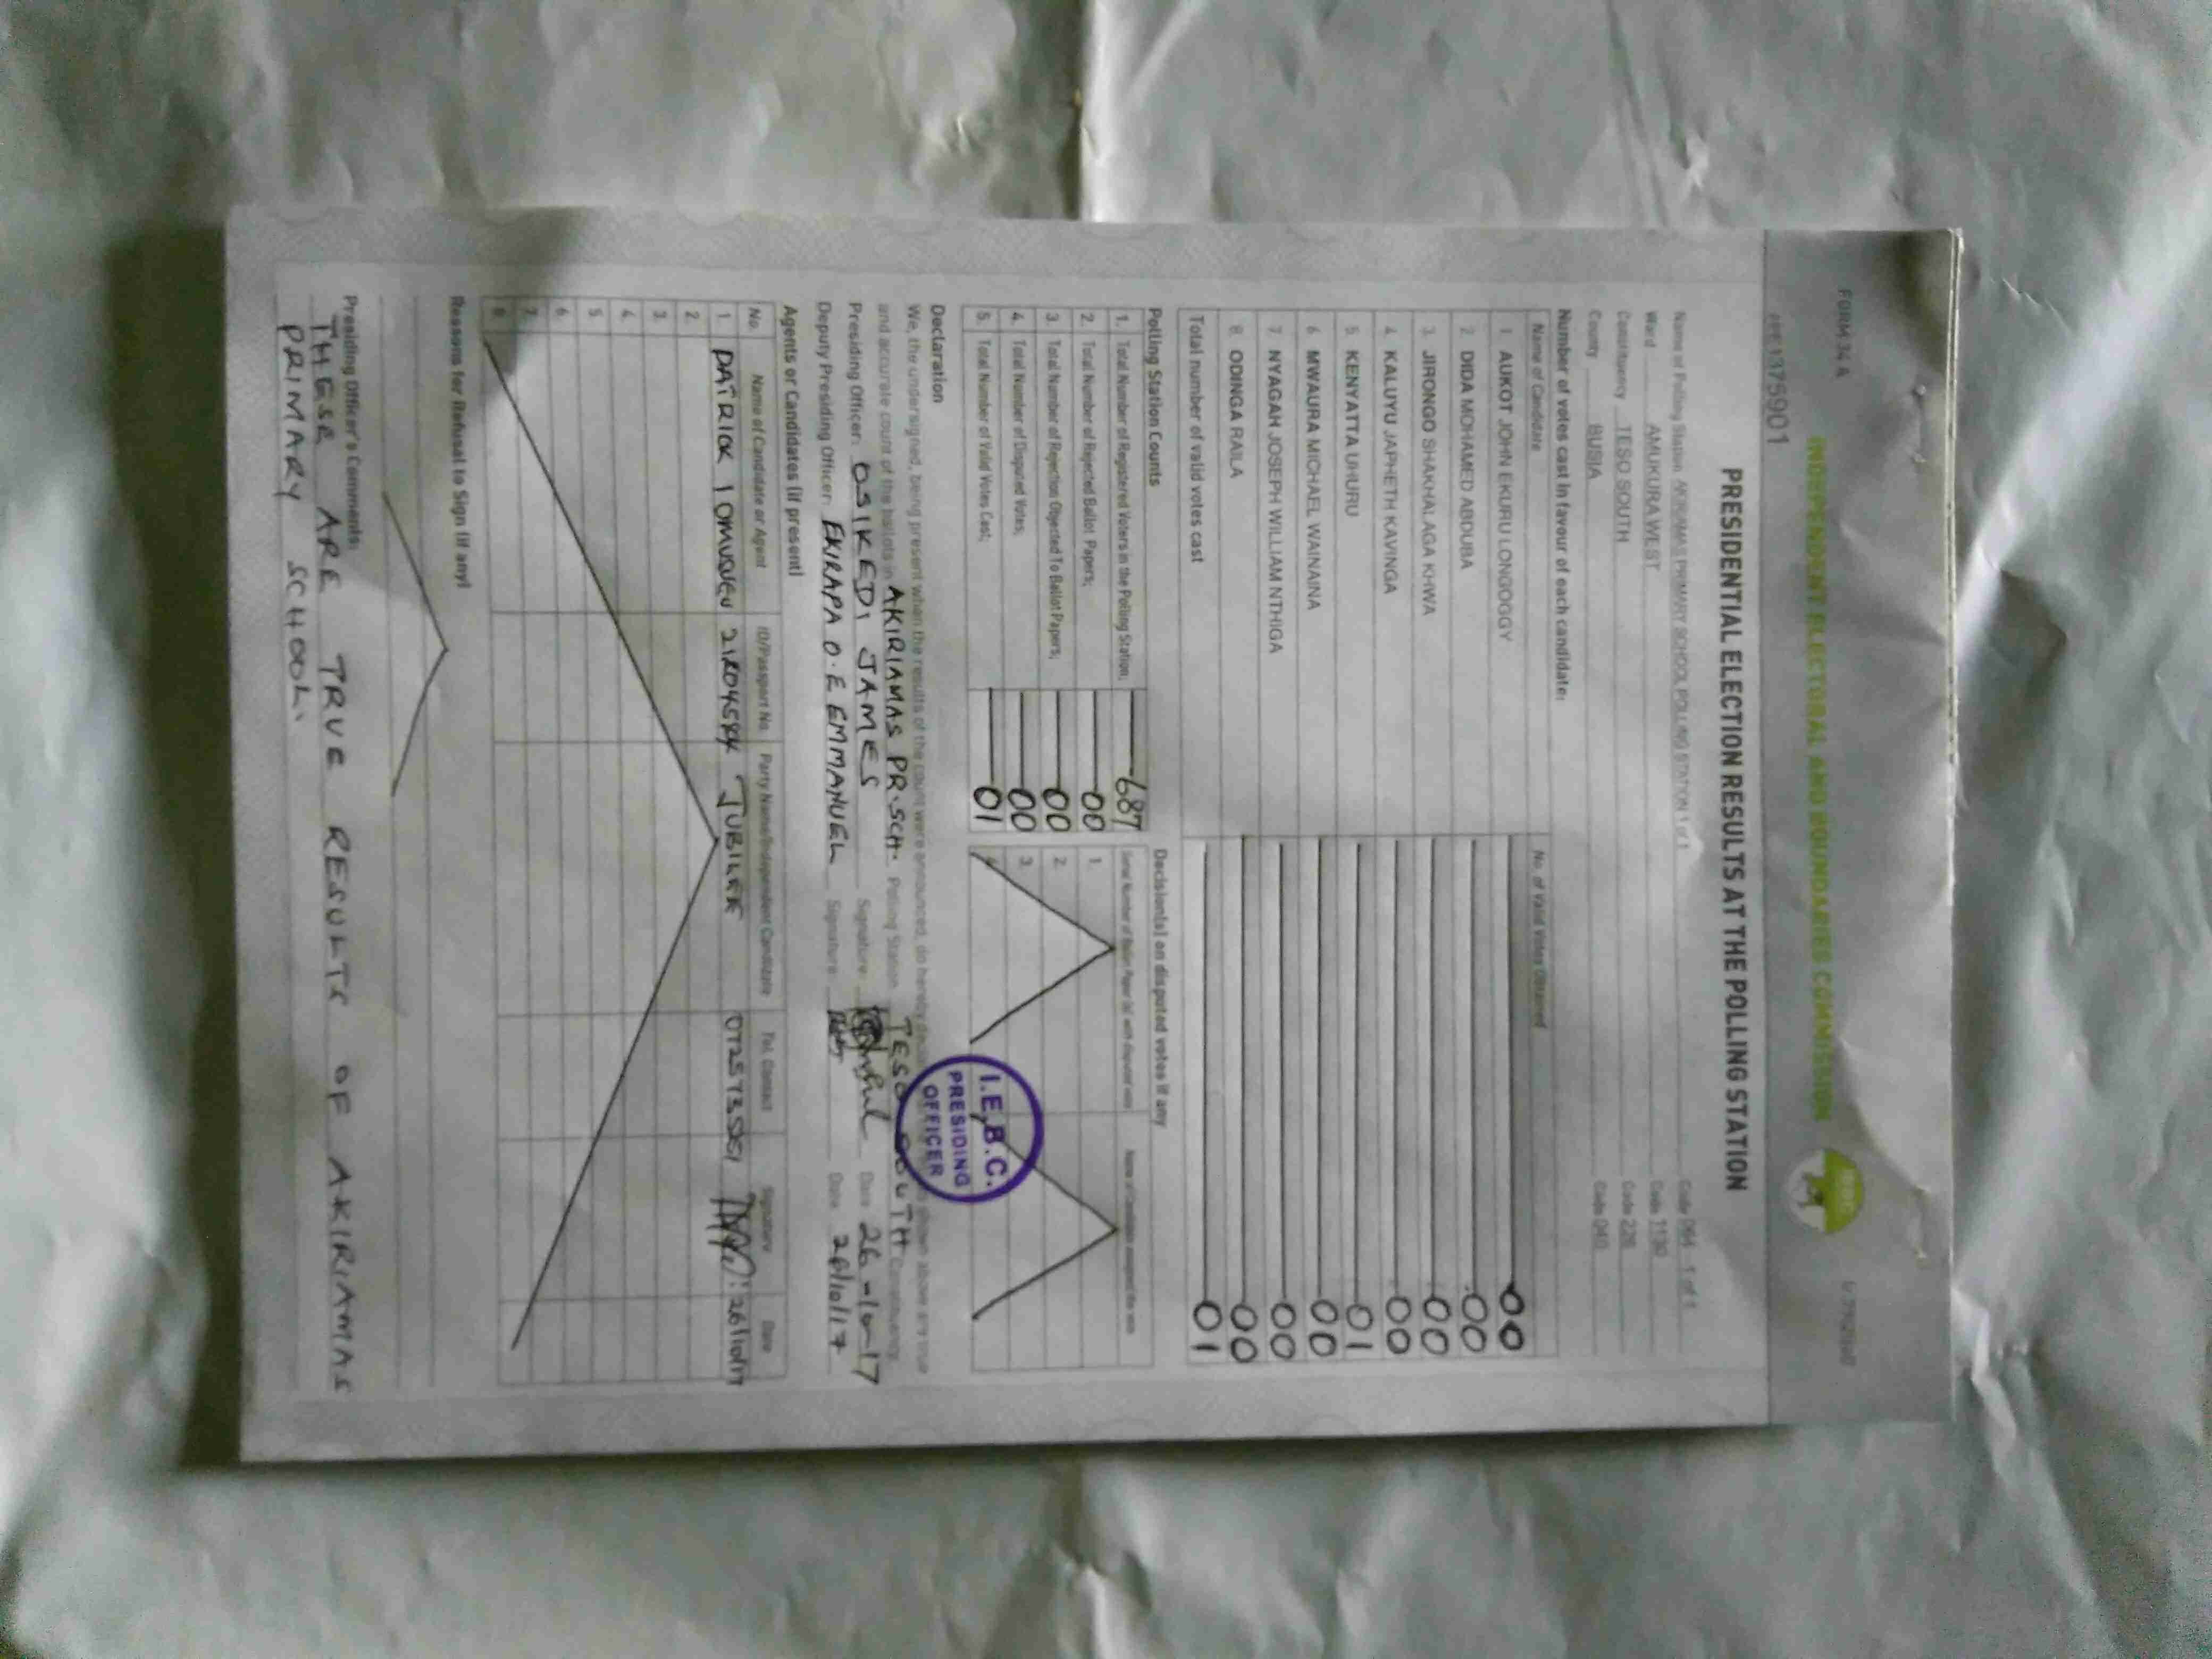 FORM 34 A
INDEPENDENT ELECTORAL AND BOUNDARIES COMMISSION
1375901
PRESIDENTIAL ELECTION RESULTS AT THE POLLING STATION
Name of Polling Station AKIRIAMAS PRIMARY SCHOOL POLLING STATION 1 of 1 Code 1 of 1
Ward AMUKURA WEST Code 1130
Constituency TESO SOUTH Code 226
County BUSIA Code 040
Number of votes cast in favour of each candidate:
Name of Candidate No. of Valid Votes Obtained
1. AUKOT JOHN EKURU LONGOGGY 00
2. DIDA MOHAMED ABDUBA 00
3. JIRONGO SHAKHALAGA KHWA 00
4. KALUYU JAPHETH KAVINGA 00
5. KENYATTA UHURU 01
6. MWAURA MICHAEL WAINAINA 00
7. NYAGAH JOSEPH WILLIAM NTHIGA 00
8. ODINGA RAILA 00
Total number of valid votes cast 01
Polling Station Counts
1. Total Number of Registered Voters in the Polling Station; 687
2. Total Number of Rejected Ballot Papers; 00
3. Total Number of Rejection Objected To Ballot Papers; 00
4. Total Number of Disputed Votes; 00
5. Total Number of Valid Votes Cast; 01
Decision(s) on disputed votes if any
1.
2.
3.
I.E.B.C.
PRESIDING
OFFICER
Declaration
We, the undersigned, being present when the results of the count were announced, do hereby shown above are true
and accurate count of the ballots in AKIRIAMAS PR. SCH. Polling Station TESO SOUTH Constituency.
Presiding Officer: OSIKEDI JAMES Signature Date 26-10-17
Deputy Presiding Officer: EKIRAPA O.E EMMANUEL Signature Date 26/10/17
Agents or Candidates (if present)
No. Name of Candidate or Agent ID/Passport No. Party Name/Independent Candidate Tel. Contact Signature Date
1. PATRICK JUBILEE 26/10/17
2.
3.
4.
5.
6.
7.
8.
Reasons for Refusal to Sign (if any)
Presiding Officer's Comments:
THESE ARE TRUE RESULTS OF AKIRIAMAS
PRIMARY SCHOOL.